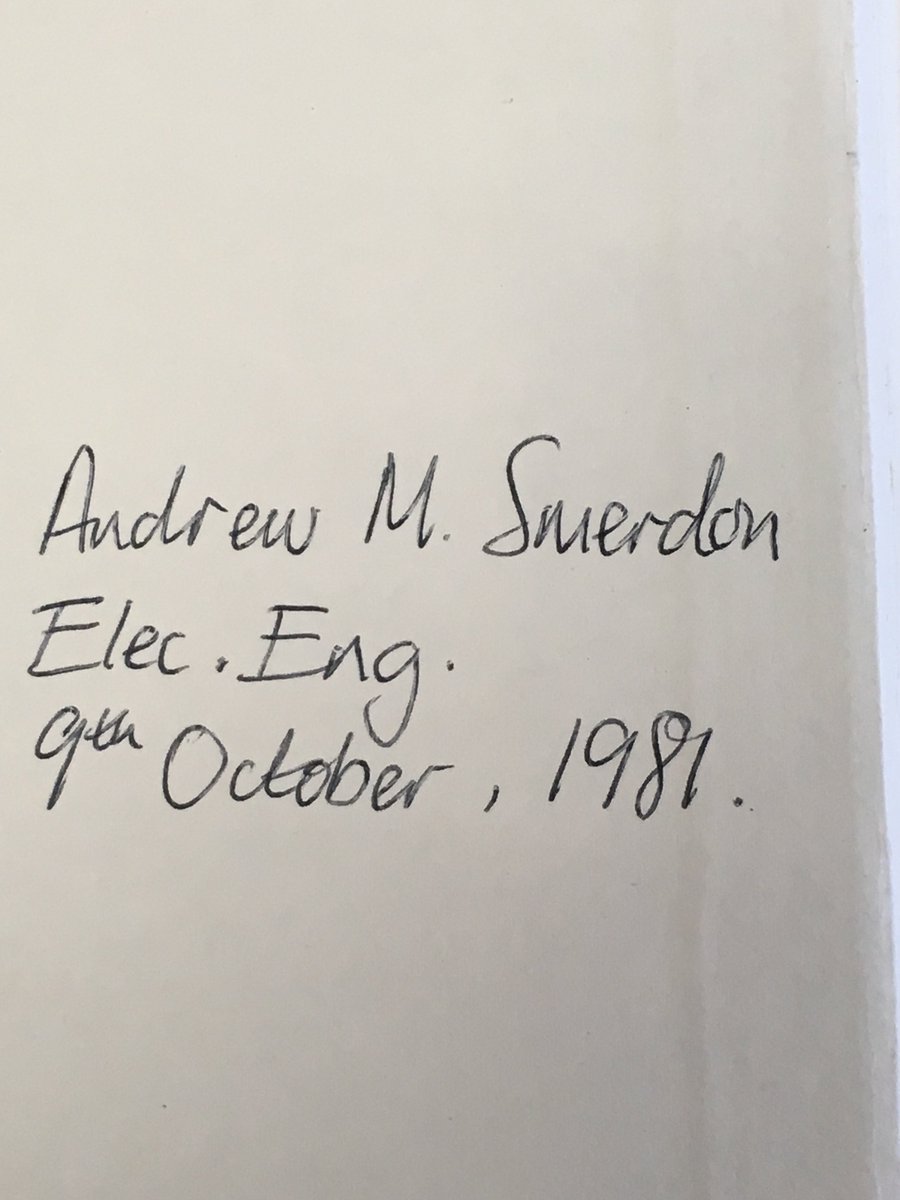 Andrew M. Smerdon
Elec. Eng.
9th October, 1981.